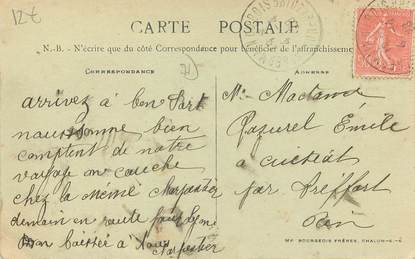 12€
CARTE POSTALE
N.-B. - N'écrire que du côté Correspondance pour bénéficier de l'affranchissement
CORRESPONDANCE
ADRESSE
arrivez à bon Port
nous somme bien
comptent de notre
voyage on couche
chez la même Charpentier
demain en route pour Lyon
Bon baissér à tous
Charpentier
Mr Madame
Émile
à Cuisiat
par Treffort
Ain
IMP. BOURGEOIS FRÈRES, CHALON-S.-S.